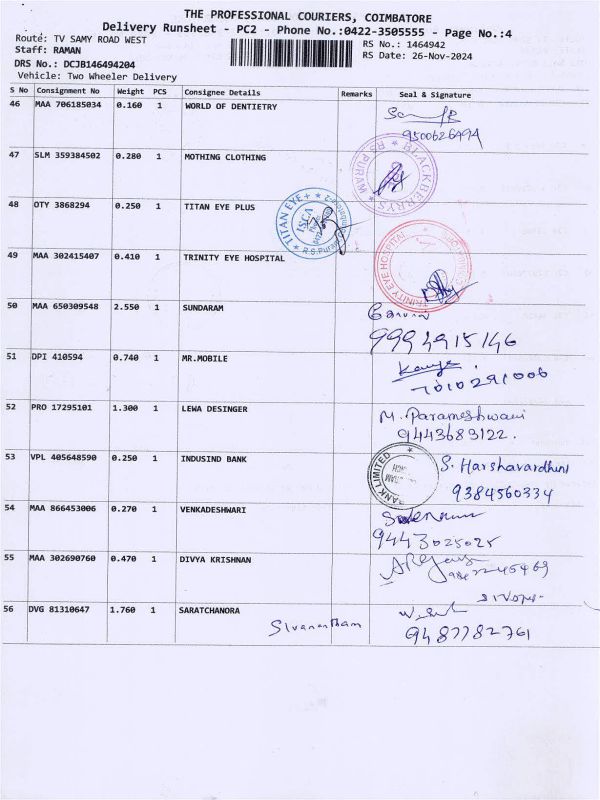 THE PROFESSIONAL COURIERS, COIMBATORE
Delivery Runsheet - PC2 - Phone No.:0422-3505555 - Page No.:4
Route: TV SAMY ROAD WEST
RS No.: 1464942
Staff: RAMAN
RS Date: 26-Nov-2024
DRS No.: DCJB146494204
Vehicle: Two Wheeler Delivery
S No Consignment No Weight PCS Consignee Details Remarks Seal & Signature
46 MAA 706185034 0.160 1 WORLD OF DENTIETRY
9500626494
47 SLM 359384502 0.280 1 MOTHING CLOTHING
BLACKBERRYS
RS PURAM
48 OTY 3868294 0.250 1 TITAN EYE PLUS
TITAN EYE+
ISCA
R.S.Puram
49 MAA 302415407 0.410 1 TRINITY EYE HOSPITAL
TRINITY EYE HOSPITAL
50 MAA 650309548 2.550 1 SUNDARAM
9994915146
51 DPI 410594 0.740 1 MR.MOBILE
7010291006
52 PRO 17295101 1.300 1 LEWA DESINGER
M. Parameshwari
9443683122.
53 VPL 405648590 0.250 1 INDUSIND BANK
BANK LIMITED
S. Harshavardhini
9384560334
54 MAA 866453006 0.270 1 VENKADESHWARI
9443025025
55 MAA 302690760 0.470 1 DIVYA KRISHNAN
56 DVG 81310647 1.760 1 SARATCHANORA
Sivanantham
9487782761